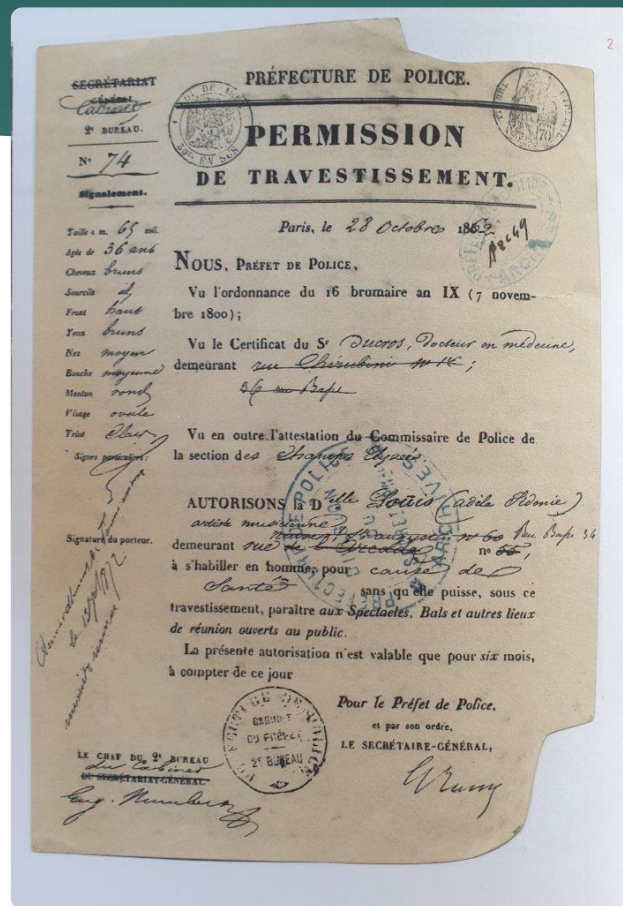 2
SECRÉTARIAT
GÉNÉRAL
Cabinet
2e BUREAU.
N° 74
Signalement.
Taille 1 m. 65 mil.
âgée de 36 ans
Cheveux bruns
Sourcils id
Front haut
Yeux bruns
Nez moyen
Bouche moyenne
Menton rond
Visage ovale
Teint Clair
Signes particuliers:
Signature du porteur.
PRÉFECTURE DE POLICE.
PERMISSION
DE TRAVESTISSEMENT.
Paris, le 28 Octobre 1862
NOUS, PRÉFET DE POLICE,
Vu l'ordonnance du 16 brumaire an IX (7 novem-
bre 1800);
Vu le Certificat du Sr Ducros, Docteur en médecine,
demeurant rue Chérubini n° ;
Vu en outre l'attestation du Commissaire de Police de
la section des Champs Elysées
AUTORISONS la Delle Louis (adèle Sidonie)
artiste musicienne
demeurant rue n° 55,
à s'habiller en homme, pour cause de
Santé sans qu'elle puisse, sous ce
travestissement, paraître aux Spectacles, Bals et autres lieux
de réunion ouverts au public.
La présente autorisation n'est valable que pour six mois,
à compter de ce jour
Pour le Préfet de Police,
et par son ordre,
LE SECRÉTAIRE-GÉNÉRAL,
CABINET
DU PRÉFET
2e BUREAU
LE CHEF DU 2e BUREAU
du Cabinet
DU SECRÉTARIAT-GÉNÉRAL.